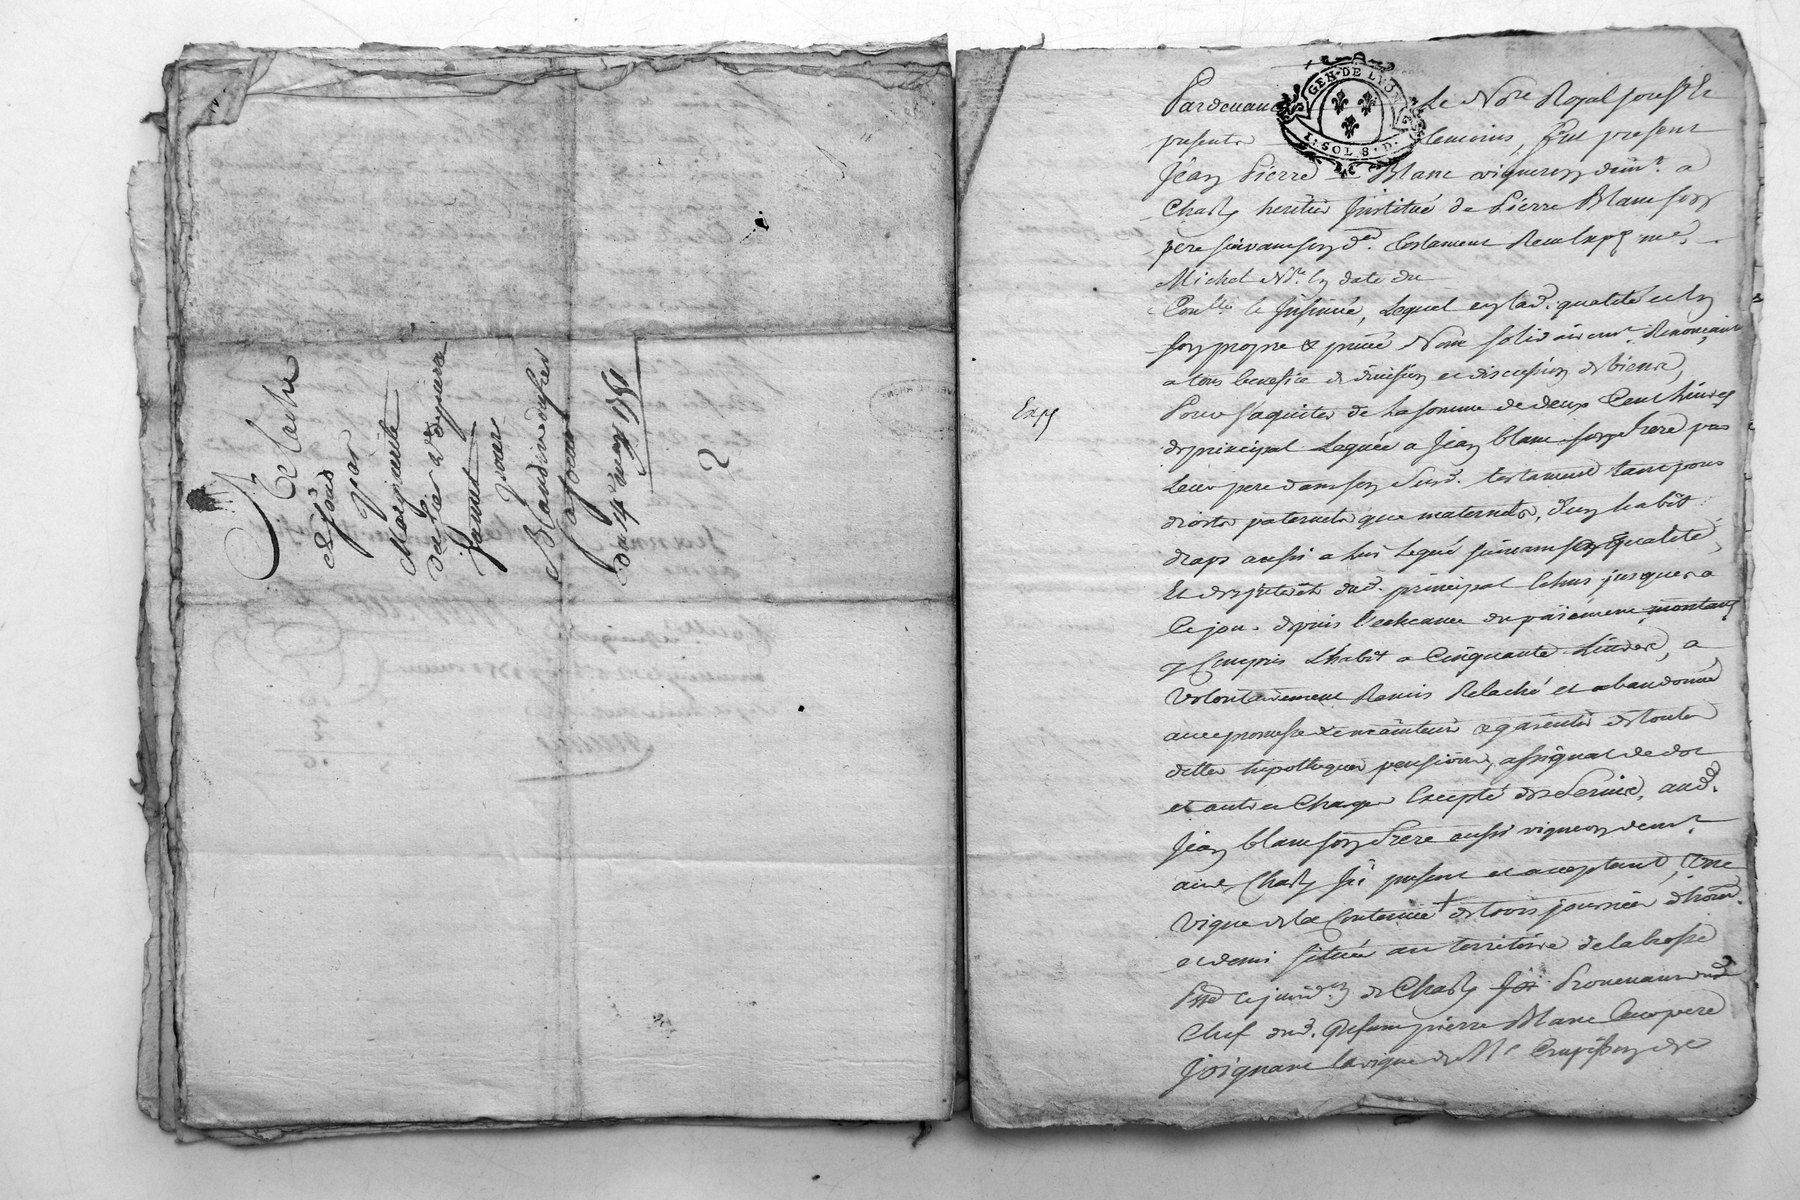 Relache
de fond
par
Marguerite
a
Jannet
Jour
Blandine
du 4e may 1751
2
Pardevant Le Nore Royal soussé Le
GEN. DE LYON
1. SOL 8. D.
presents temoins, fut present
Jean Pierre Blanc vigneron demt. a
Charly heritier Institué de Pierre Blanc son
pere suivant son der. testament Receu par me.
Michel Nre. en date du
Con.lé & Insinué, Lequel en lad. qualité et en
son propre & privé Nom solidairemt. Renonçant
a tous benefice de division et discussion de biens,
Pour saquiter de la somme de deux Cent Livres
de principal Leguée a Jean blanc son frere par
Leur pere dans son susd. testament tant pour
droits paternels que maternels, d'un habit
Exp
draps aussi a lui Legué suivant sa qualité,
Et des interets dud. principal Echus jusques a
Ce jour depuis l'echeance du paiement montant
y Compris Lhabit a Cinquante Livres, a
volontairement Remis Relaché et abandonné
avec promesse de maintenir & garentir de toutes
dettes hipotheques pensions, assignat de dot
et autres Charges Excepté des servis, aud.
Jean blanc son frere aussi vigneron demt.
aud. Charly Ici present et acceptant, Une
vigne de la Contenue + de trois journées d'hom.
et demi située au territoire de la brosse
de Charly Provenant du
Chef dud. defunt pierre Blanc Leur pere
Joignant la vigne de Mr de